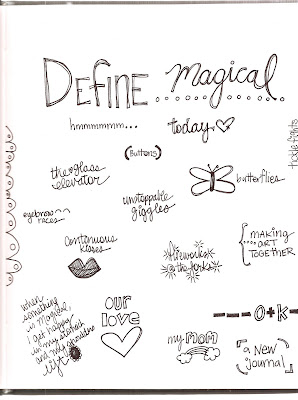 DEFINE magical
hmmmmmmm...
today
(Buttons)
the glass
elevator
butterflies
tickle fights
unstoppable
giggles
eyebrow
races
continuous
kisses
fireworks
@ the forks
MAKING
ART
TOGETHER
when
something
is magical,
I get happy
in my stomach
and my sunshine
light
our
love
O+K
my MOM
a New
journal